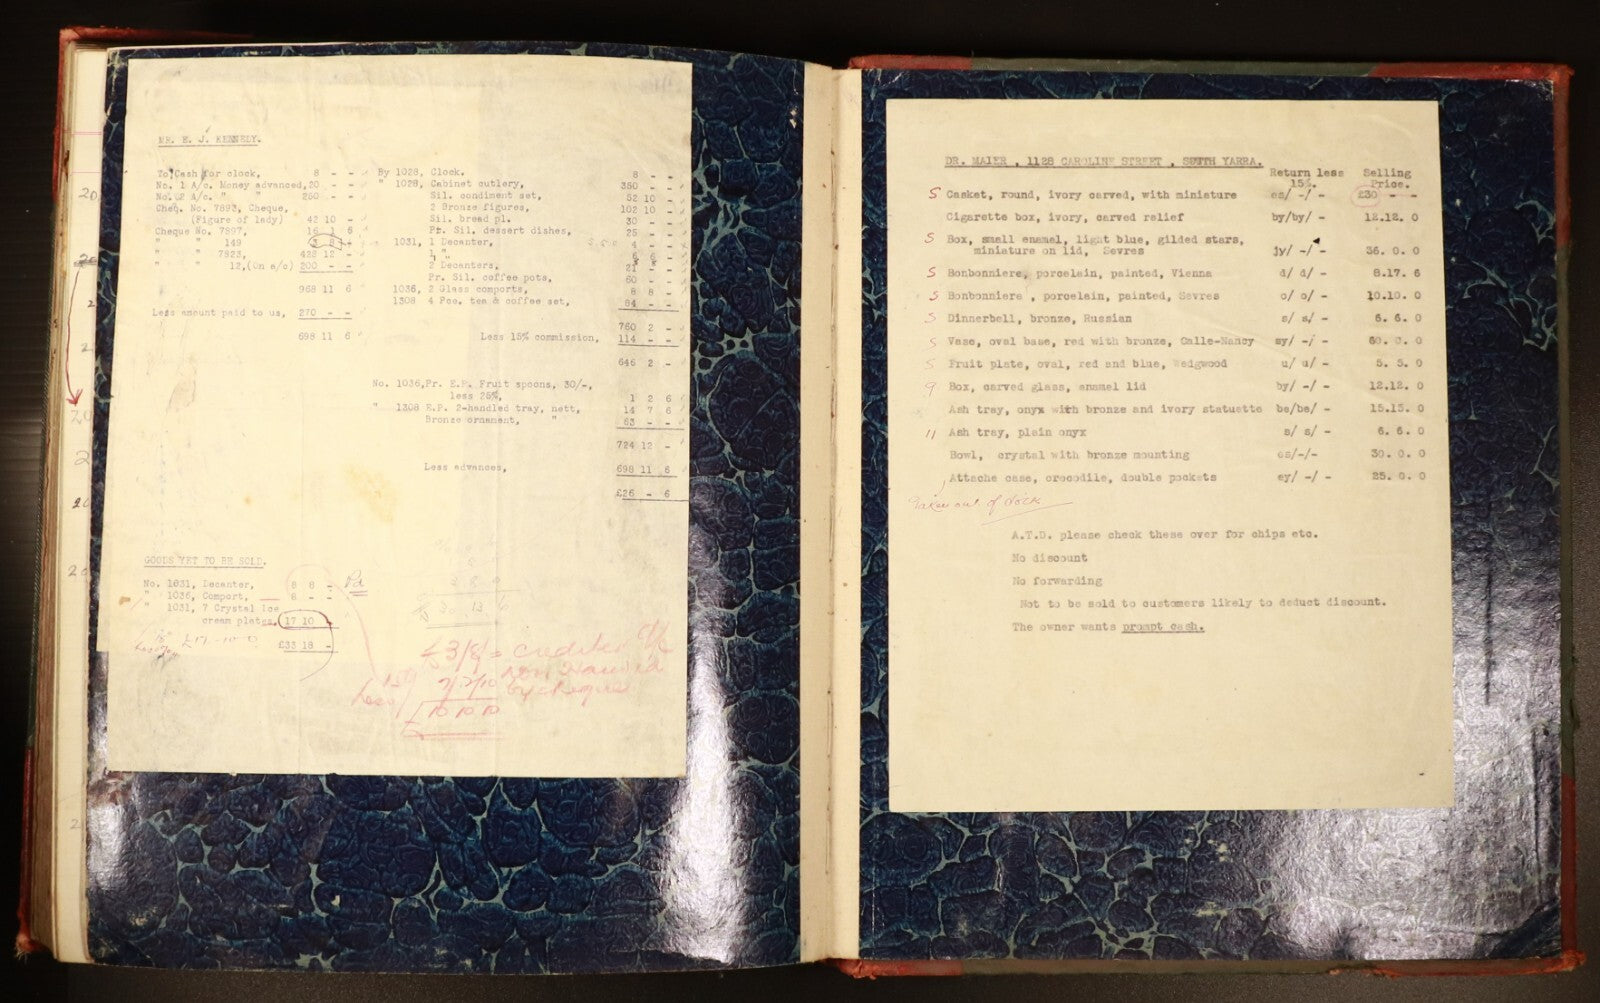 MR. E. J. KENNEDY.
To Cash for clock, 8 - -
No. 1 A/c. Money advanced, 20 - -
No. 2 A/c. " " 250 - -
Cheq. No. 7893, Cheque,
(Figure of lady) 42 10 -
Cheque No. 7897, 16 1 6
" " 149 3 8 -
" " 7823, 428 12 -
" " 12, (On a/c) 200 - -
968 11 6
Less amount paid to us, 270 - -
698 11 6
By 1028, Clock. 8 - -
" 1028, Cabinet cutlery, 350 - -
Sil. condiment set, 52 10 -
2 Bronze figures, 102 10 -
Sil. bread pl. 30 - -
Pr. Sil. dessert dishes, 25 - -
1031, 1 Decanter, 4 - -
1 " 6 6 -
2 Decanters, 21 - -
Pr. Sil. coffee pots, 60 - -
1036, 2 Glass comports, 8 8 -
1308 4 Pce. tea & coffee set, 84 - -
760 2 -
Less 15% commission, 114 - -
646 2 -
No. 1036, Pr. E.P. Fruit spoons, 30/-,
less 25%, 1 2 6
" 1308 E.P. 2-handled tray, nett, 14 7 6
Bronze ornament, " 63 - -
724 12 -
Less advances, 698 11 6
£26 - 6
GOODS YET TO BE SOLD.
No. 1031, Decanter, 8 8 - Pd
" 1036, Comport, 8 - -
" 1031, 7 Crystal Ice
cream plates, 17 10 -
£33 18 -
£17-10-0
£3/8/= credited
by cheque
Less
10 10 10
DR. MAIER , 1128 CAROLINE STREET , SOUTH YARRA.
Return less 15%. Selling Price.
S Casket, round, ivory carved, with miniature es/ -/ - £30 - -
Cigarette box, ivory, carved relief by/by/ - 12.12. 0
S Box, small enamel, light blue, gilded stars,
miniature on lid, Sevres jy/ -/ - 36. 0. 0
S Bonbonniere, porcelain, painted, Vienna d/ d/ - 8.17. 6
S Bonbonniere , porcelain, painted, Sevres o/ o/ - 10.10. 0
S Dinnerbell, bronze, Russian s/ s/ - 6. 6. 0
S Vase, oval base, red with bronze, Galle-Nancy sy/ -/ - 60. 0. 0
S Fruit plate, oval, red and blue, Wedgwood u/ u/ - 5. 5. 0
9 Box, carved glass, enamel lid by/ -/ - 12.12. 0
Ash tray, onyx with bronze and ivory statuette be/be/ - 15.15. 0
11 Ash tray, plain onyx s/ s/ - 6. 6. 0
Bowl, crystal with bronze mounting es/-/- 30. 0. 0
Attache case, crocodile, double pockets ey/ -/ - 25. 0. 0
Taken out of stock
A.T.D. please check these over for chips etc.
No discount
No forwarding
Not to be sold to customers likely to deduct discount.
The owner wants prompt cash.